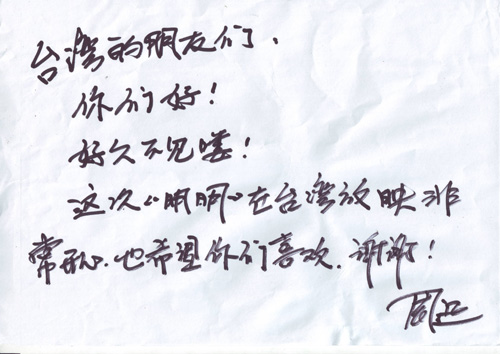 台湾的朋友们、
你们好！
好久不见喽！
这次《明明》在台湾放映非
常开心.也希望你们喜欢.谢谢！
周迅